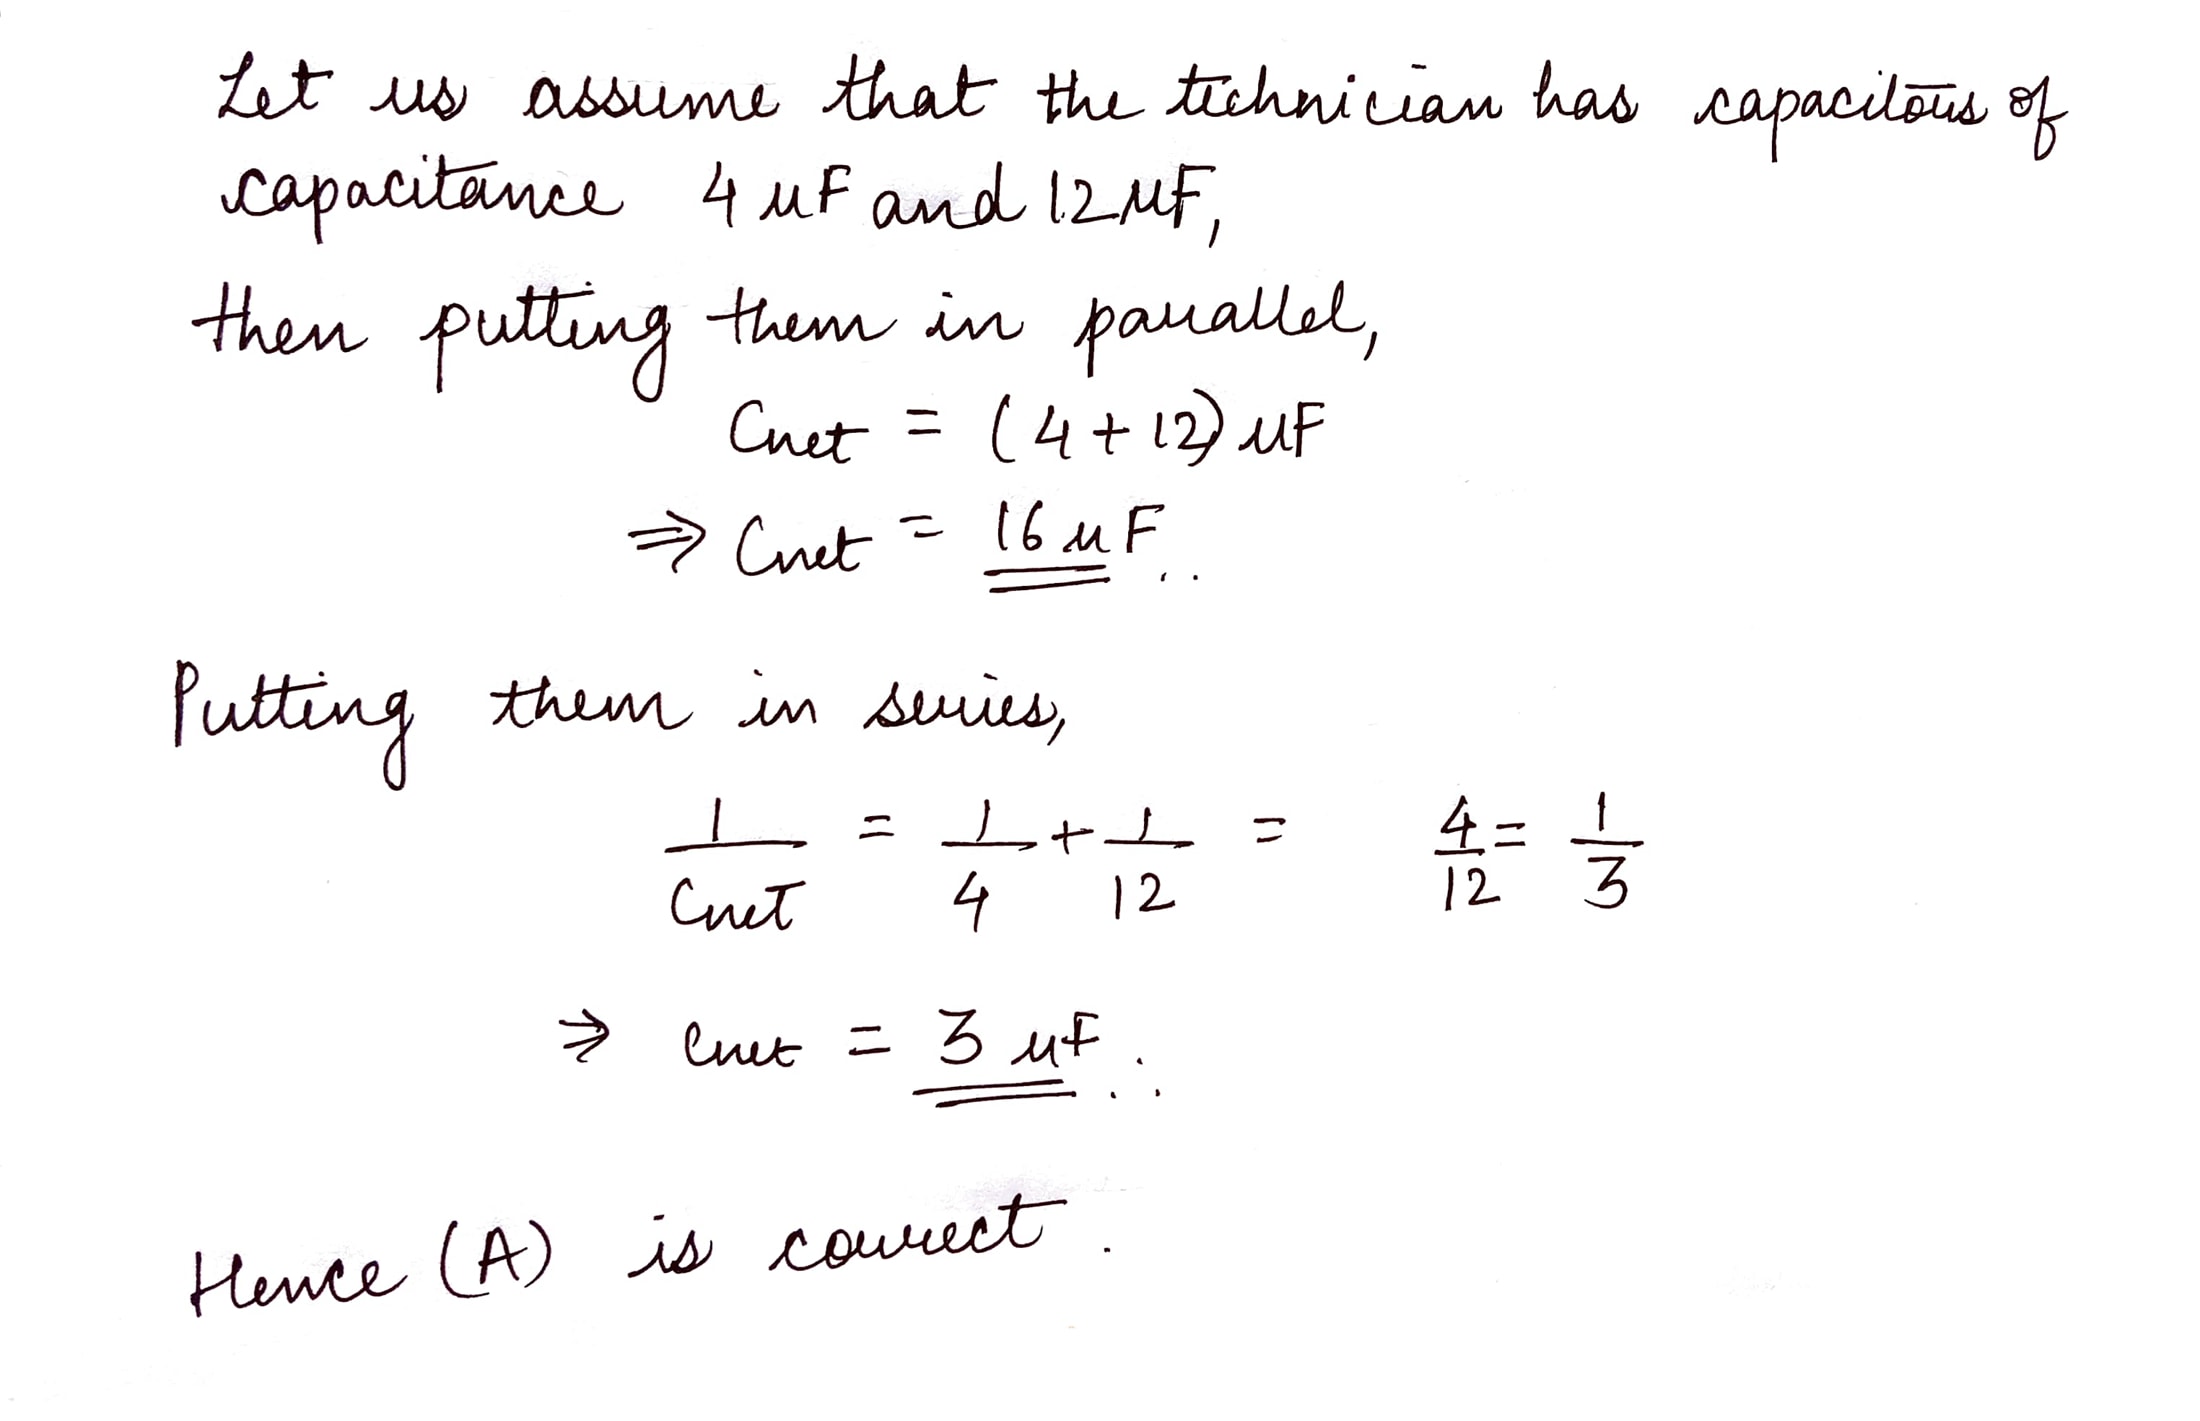 Let us assume that the technician has capacitors of
capacitance 4 μF and 12 μF,
then putting them in parallel,
Cnet = (4+12) μF
⇒ Cnet = 16 μF
Putting them in series,
1/Cnet = 1/4 + 1/12 = 4/12 = 1/3
⇒ Cnet = 3 μF
Hence (A) is correct.